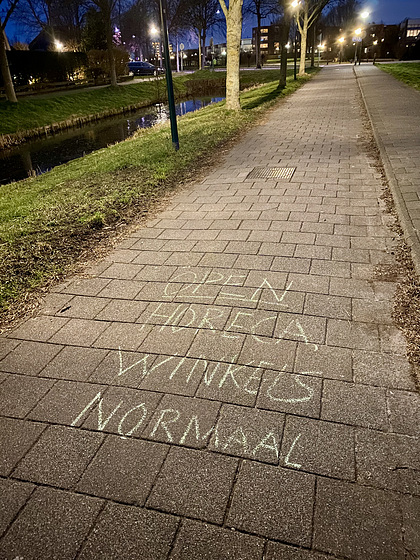 OPEN
HORECA,
WINKELS
NORMAAL